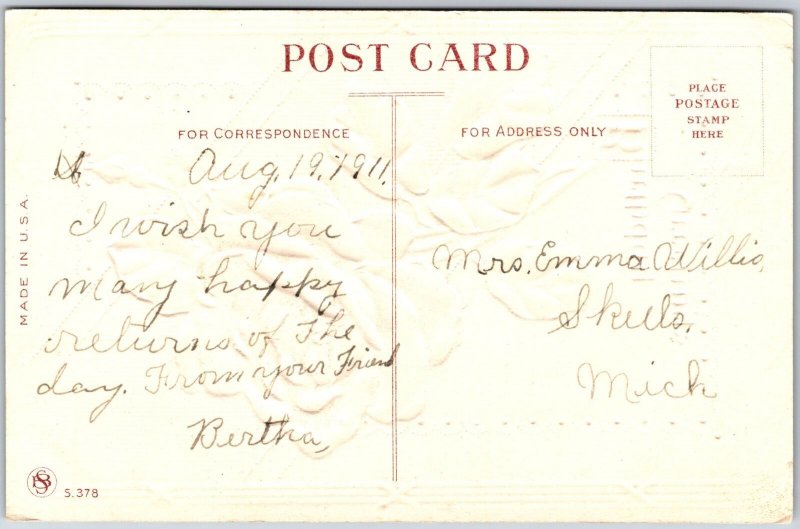 POST CARD
PLACE
POSTAGE
STAMP
HERE
FOR CORRESPONDENCE
FOR ADDRESS ONLY
Aug. 19, 1911.
I wish you
many happy
returns of The
day. From your Friend
Bertha,
Mrs. Emma Willis,
Skeels,
Mich
MADE IN U.S.A.
S.378